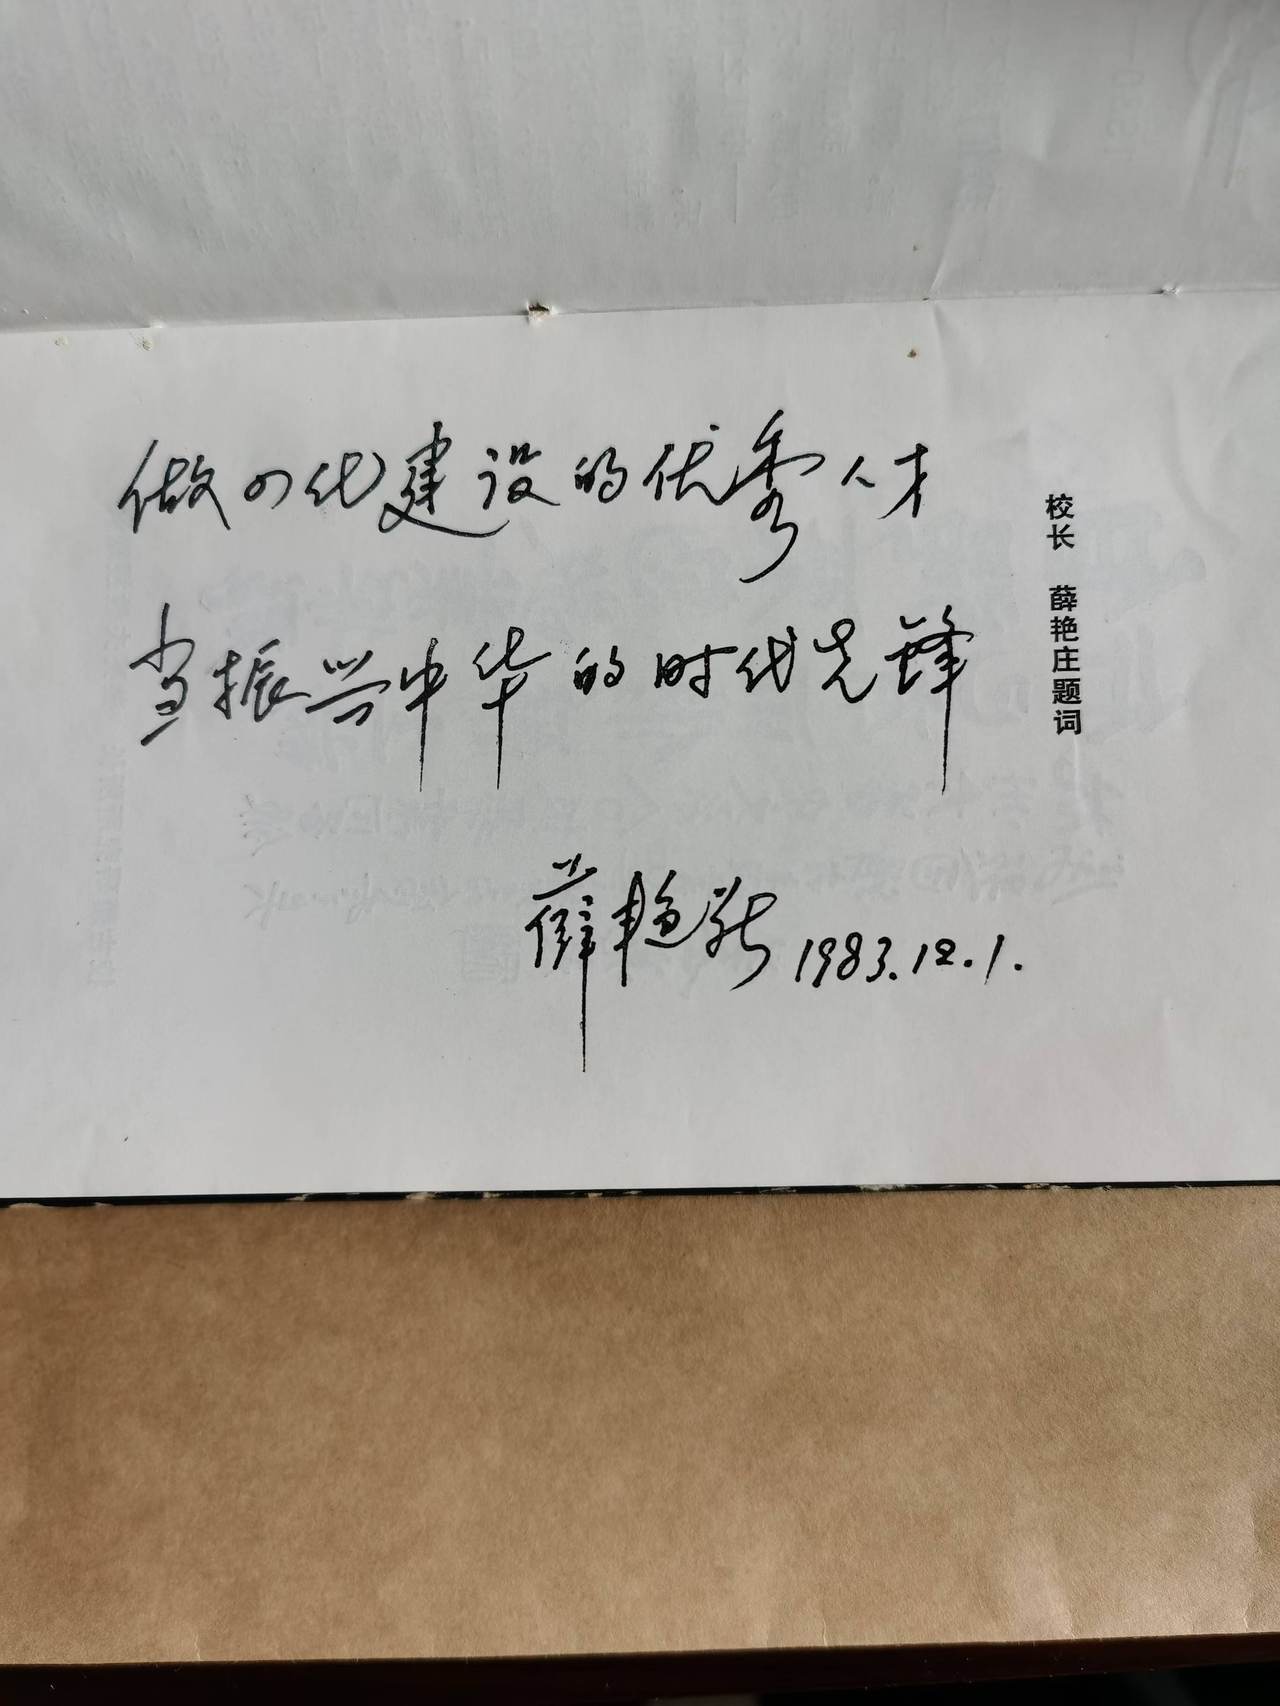 做四化建设的优秀人才
当振兴中华的时代先锋
薛艳庄 1983.12.1.
校长 薛艳庄题词